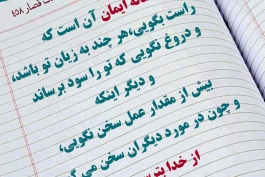 ت قصار ۴۵۸
نه ایمان آن است که
راست بگویی، هر چند به زیان تو باشد،
و دروغ نگویی که تو را سود برساند
و دیگر اینکه
بیش از مقدار عمل سخن نگویی،
و چون در مورد دیگران سخن می‌گ
از خدا بتر